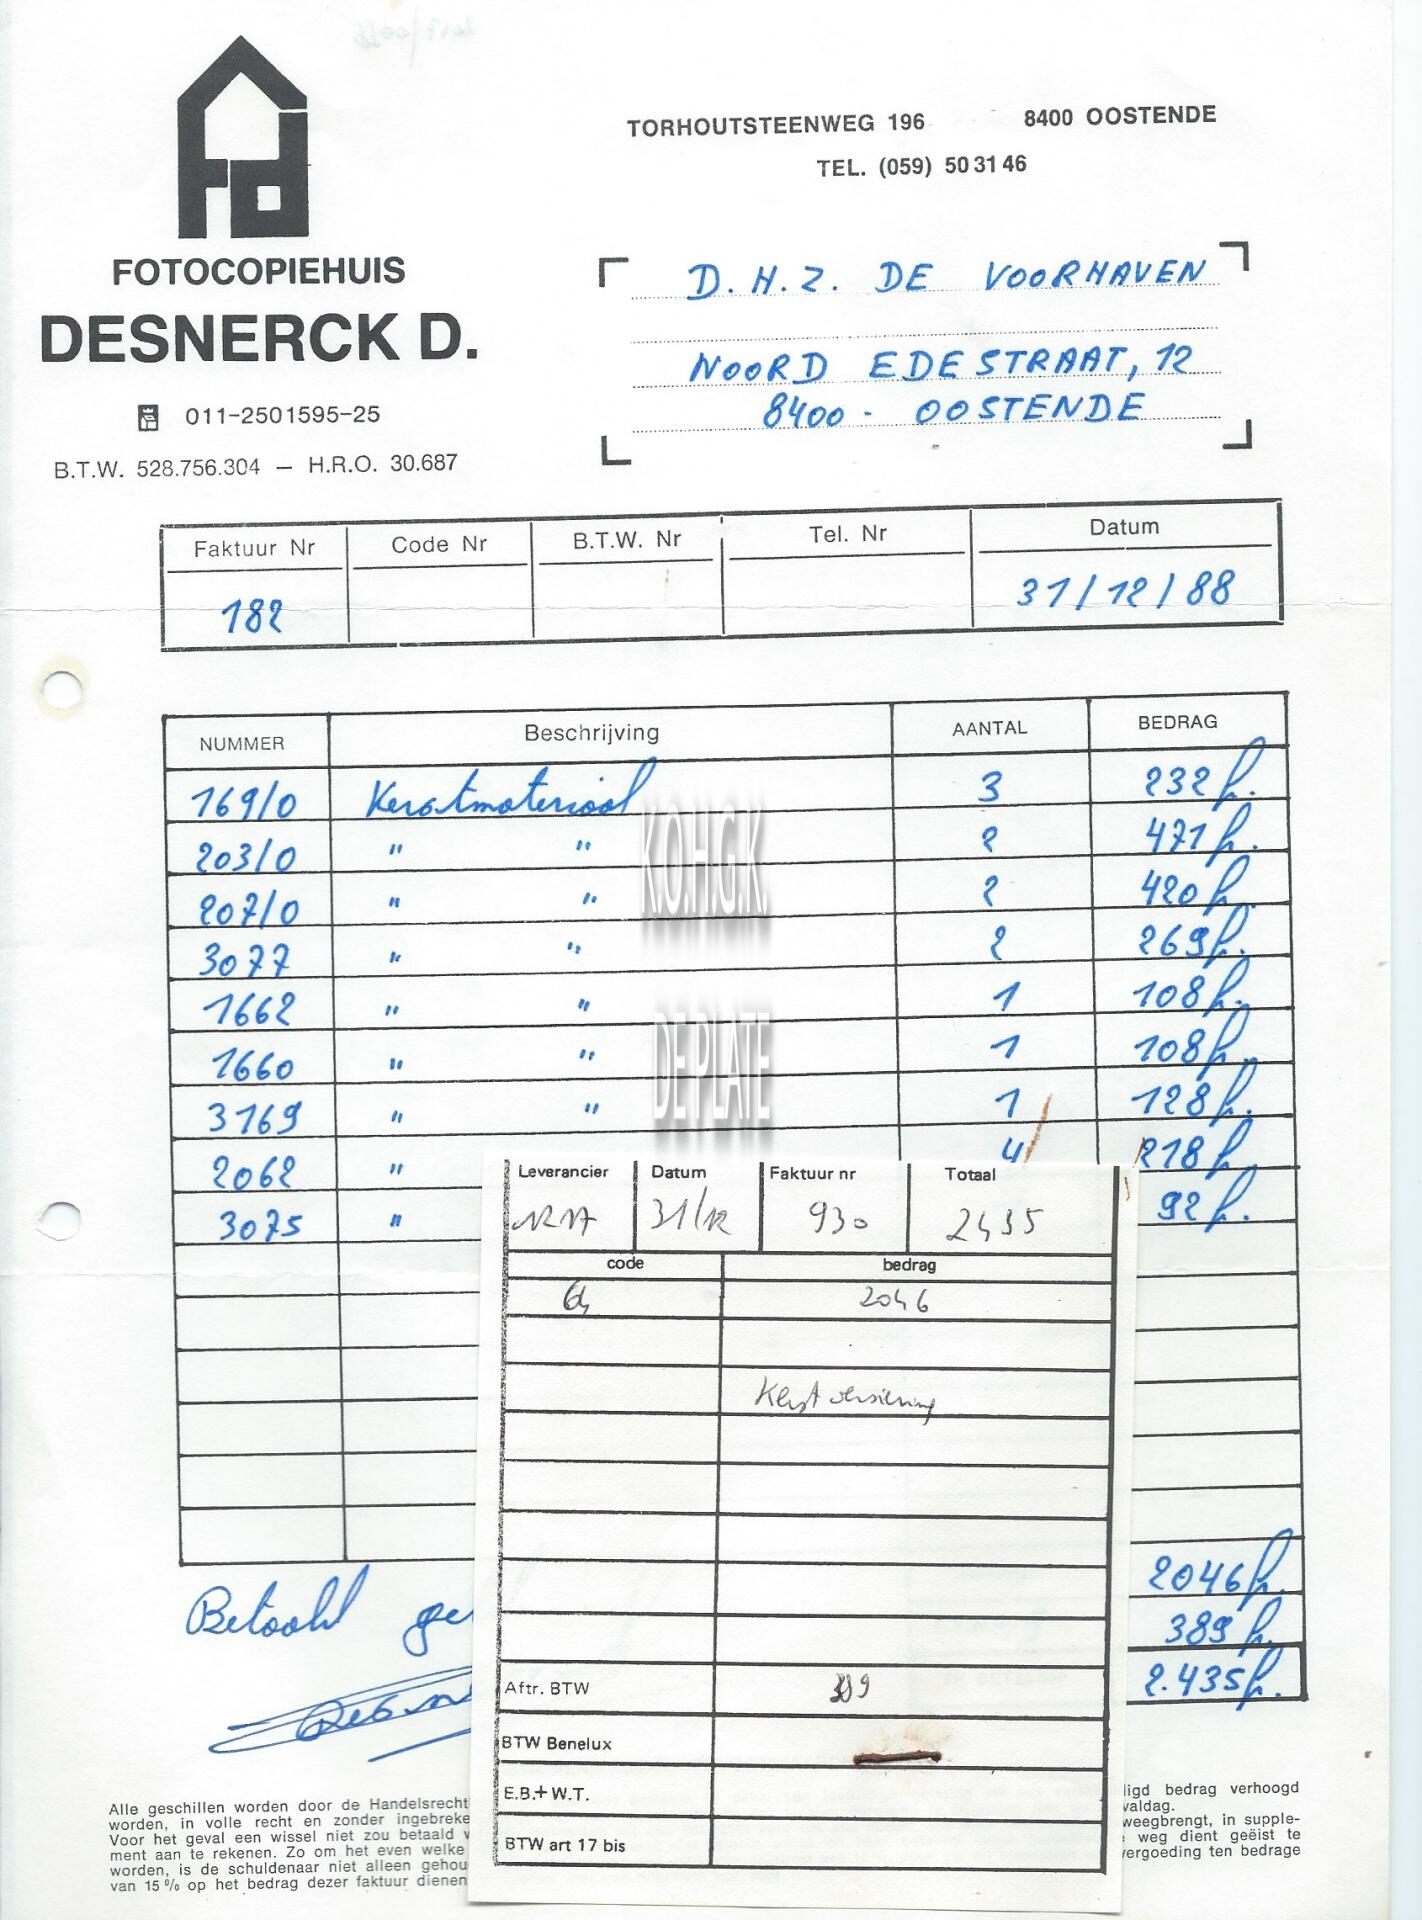 TORHOUTSTEENWEG 196 8400 OOSTENDE
TEL. (059) 50 31 46
FOTOCOPIEHUIS
DESNERCK D.
011-2501595-25
B.T.W. 528.756.304 — H.R.O. 30.687
D.H.Z. DE VOORHAVEN
NOORD EDESTRAAT, 12
8400 - OOSTENDE
Faktuur Nr Code Nr B.T.W. Nr Tel. Nr Datum
182 31/12/88
NUMMER Beschrijving AANTAL BEDRAG
169/0 Kerstmateriaal 3 232 fr.
203/0 " " 2 471 fr.
207/0 " " 2 420 fr.
3077 " " 2 269 fr.
1662 " " 1 108 fr.
1660 " " 1 108 fr.
3169 " " 1 128 fr.
2062 " 4 218 fr.
3075 " 92 fr.
K.O.H.G.K.
DE PLATE
Leverancier Datum Faktuur nr Totaal
31/12 930 2435
code bedrag
64 2046
Kerstversiering
2046 fr.
389 fr.
2.435 fr.
Betaald ge
Aftr. BTW 389
BTW Benelux
E.B.+ W.T.
BTW art 17 bis
Alle geschillen worden door de Handelsrecht
worden, in volle recht en zonder ingebreke
Voor het geval een wissel niet zou betaald v
ment aan te rekenen. Zo om het even welke
worden, is de schuldenaar niet alleen gehou
van 15 % op het bedrag dezer faktuur dienen
ligd bedrag verhoogd
valdag.
weegbrengt, in supple-
weg dient geëist te
vergoeding ten bedrage